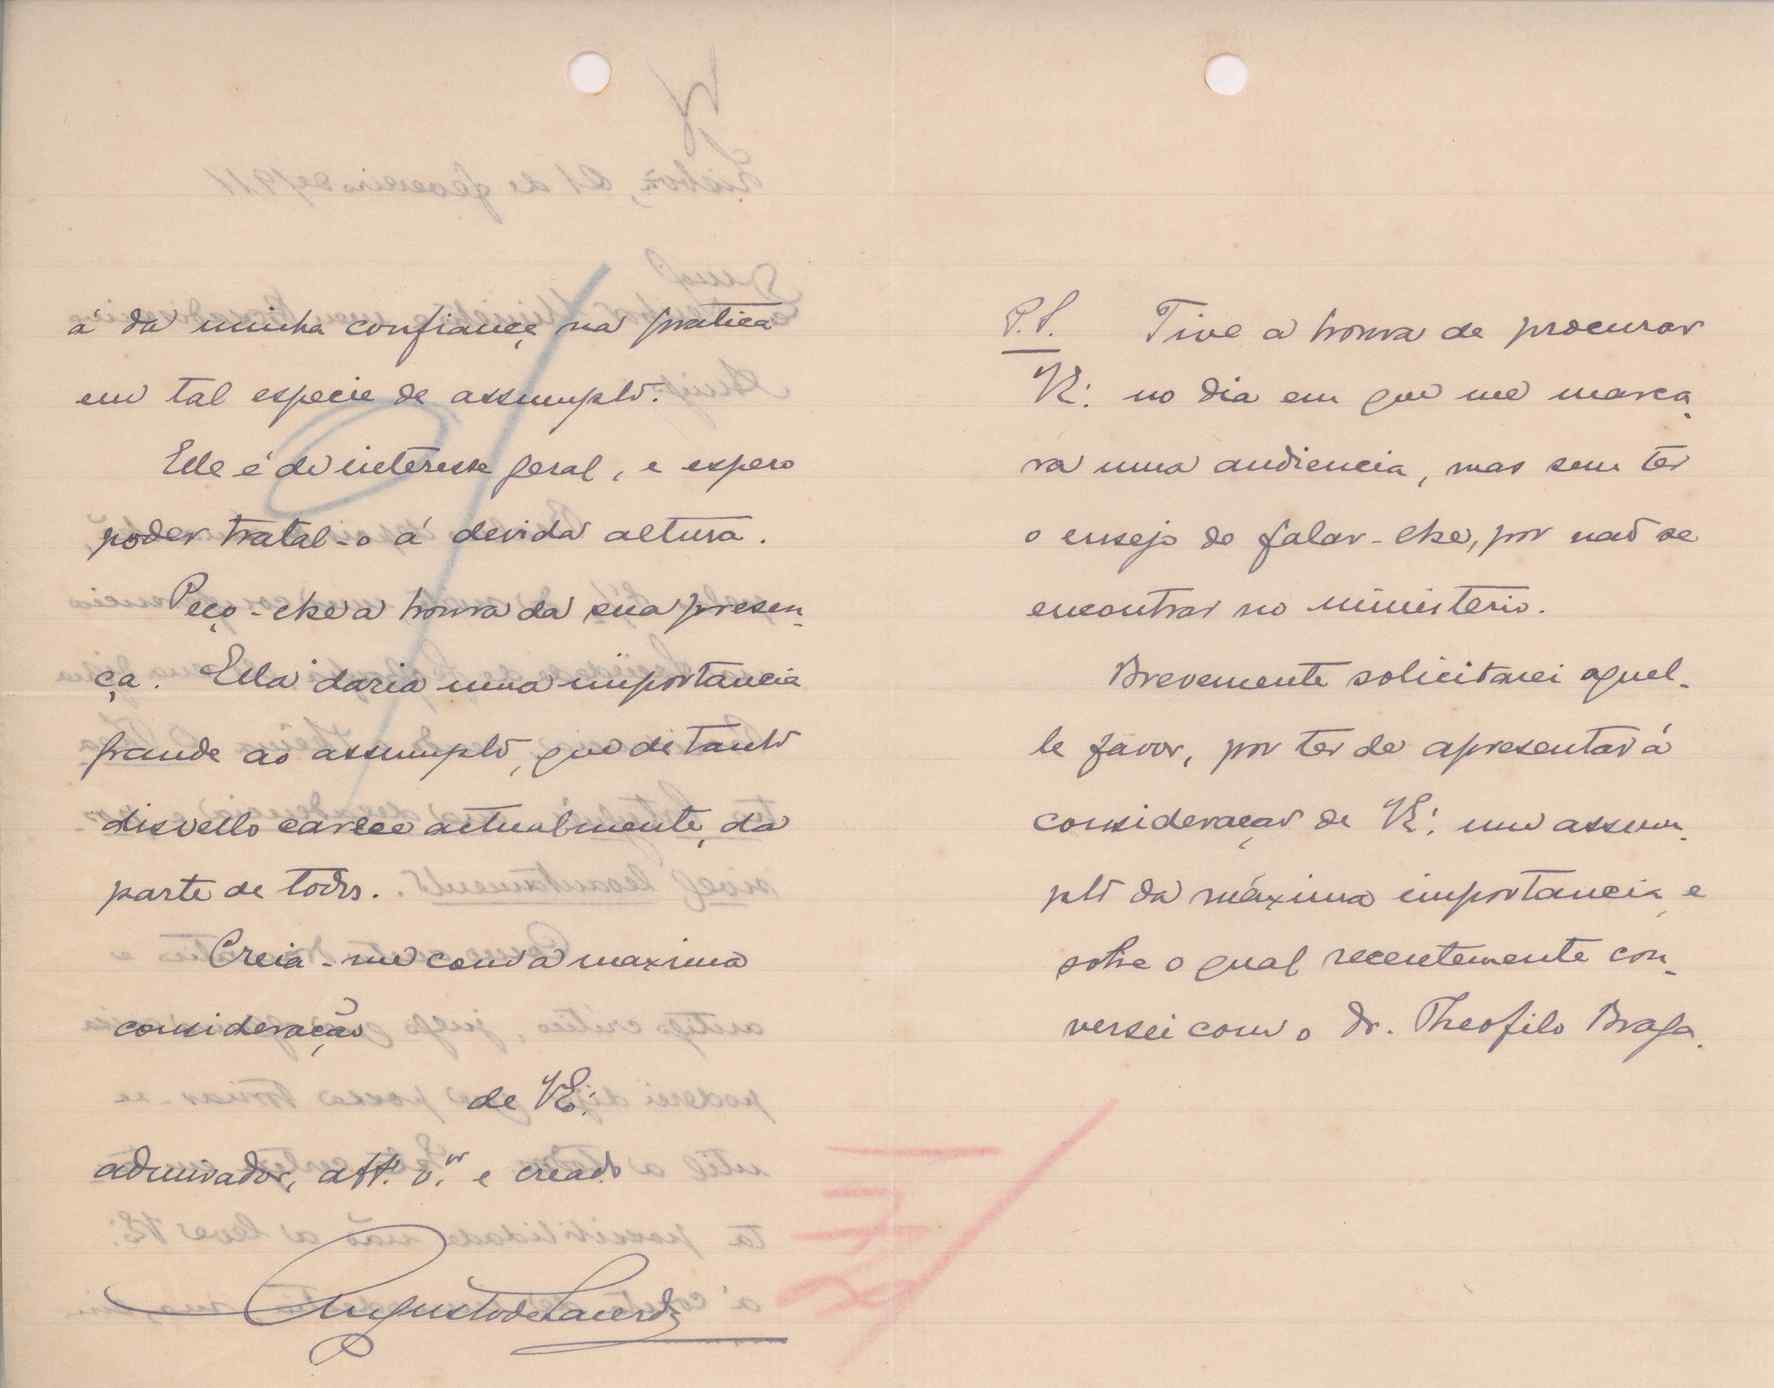 á da minha confiança na pratica
em tal especie de assumpto.
Elle é de interesse geral, e espero
poder tratal-o á devida altura.
Peço-lhe a honra da sua presen-
ça. Ella daria uma importancia
grande ao assumpto, que de tanto
disvello carece actualmente, da
parte de todos.
Creia-me com a maxima
consideração
de V.E.
admirador, att.º v.ºr e creado
Augusto de Lacerda
P.S. Tive a honra de procurar
V.E. no dia em que me marca-
ra uma audiencia, mas sem ter
o ensejo de falar-lhe, por não se
encontrar no ministerio.
Brevemente solicitarei aquel-
le favor, por ter de apresentar á
consideração de V.E. um assum-
pto da máxima importancia, e
sobre o qual recentemente con-
versei com o dr. Theofilo Braga.